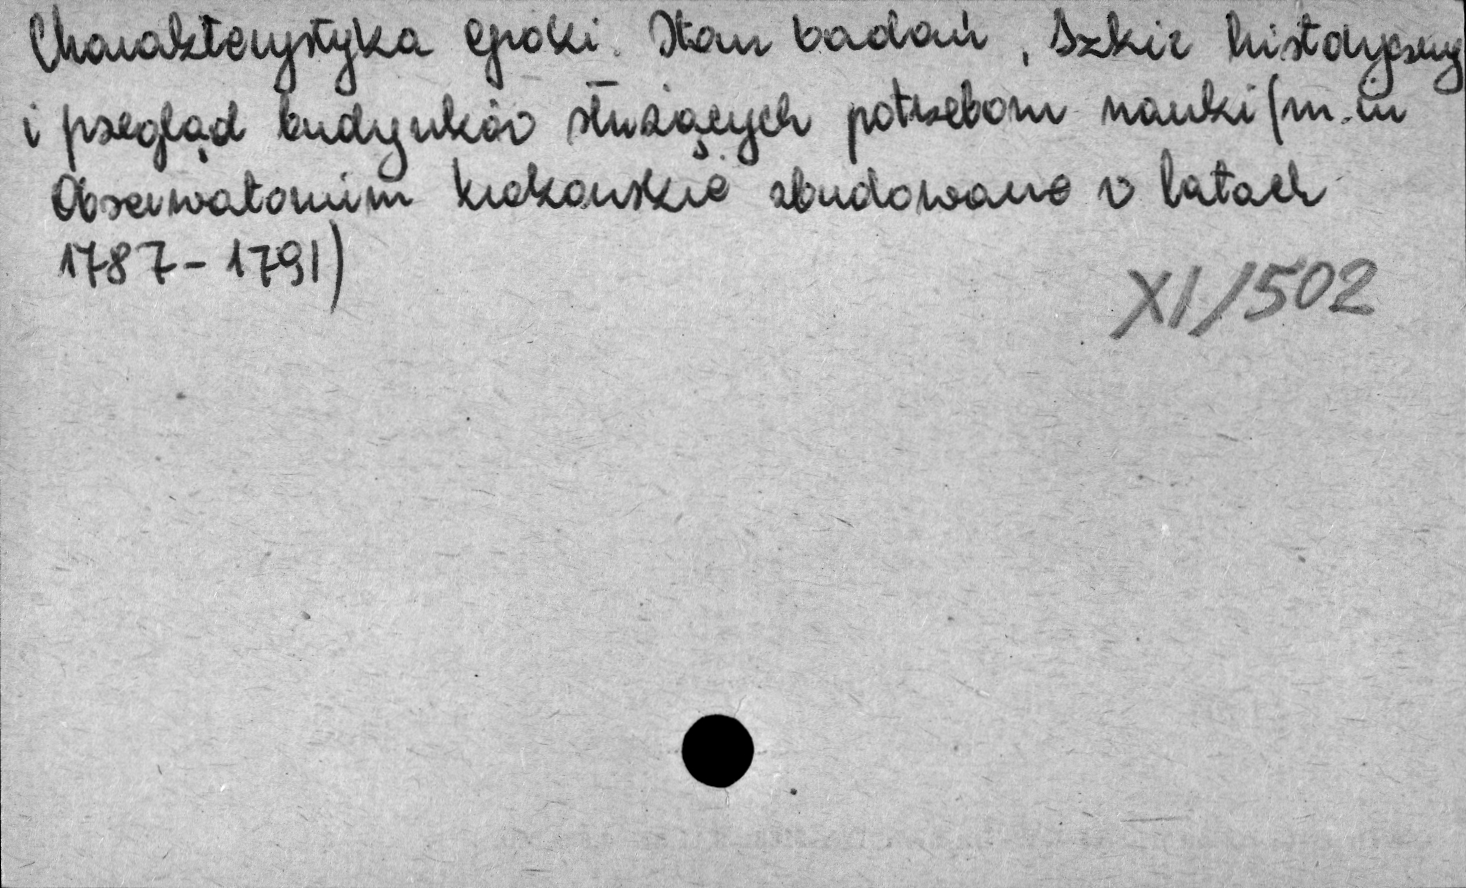 Charakterystyka epoki. Stan badań, Szkic historyczny
i przegląd budynków służących potrzebom nauki (m.in
Obserwatorium krakowskie zbudowane w latach
1787-1791)
XI/502